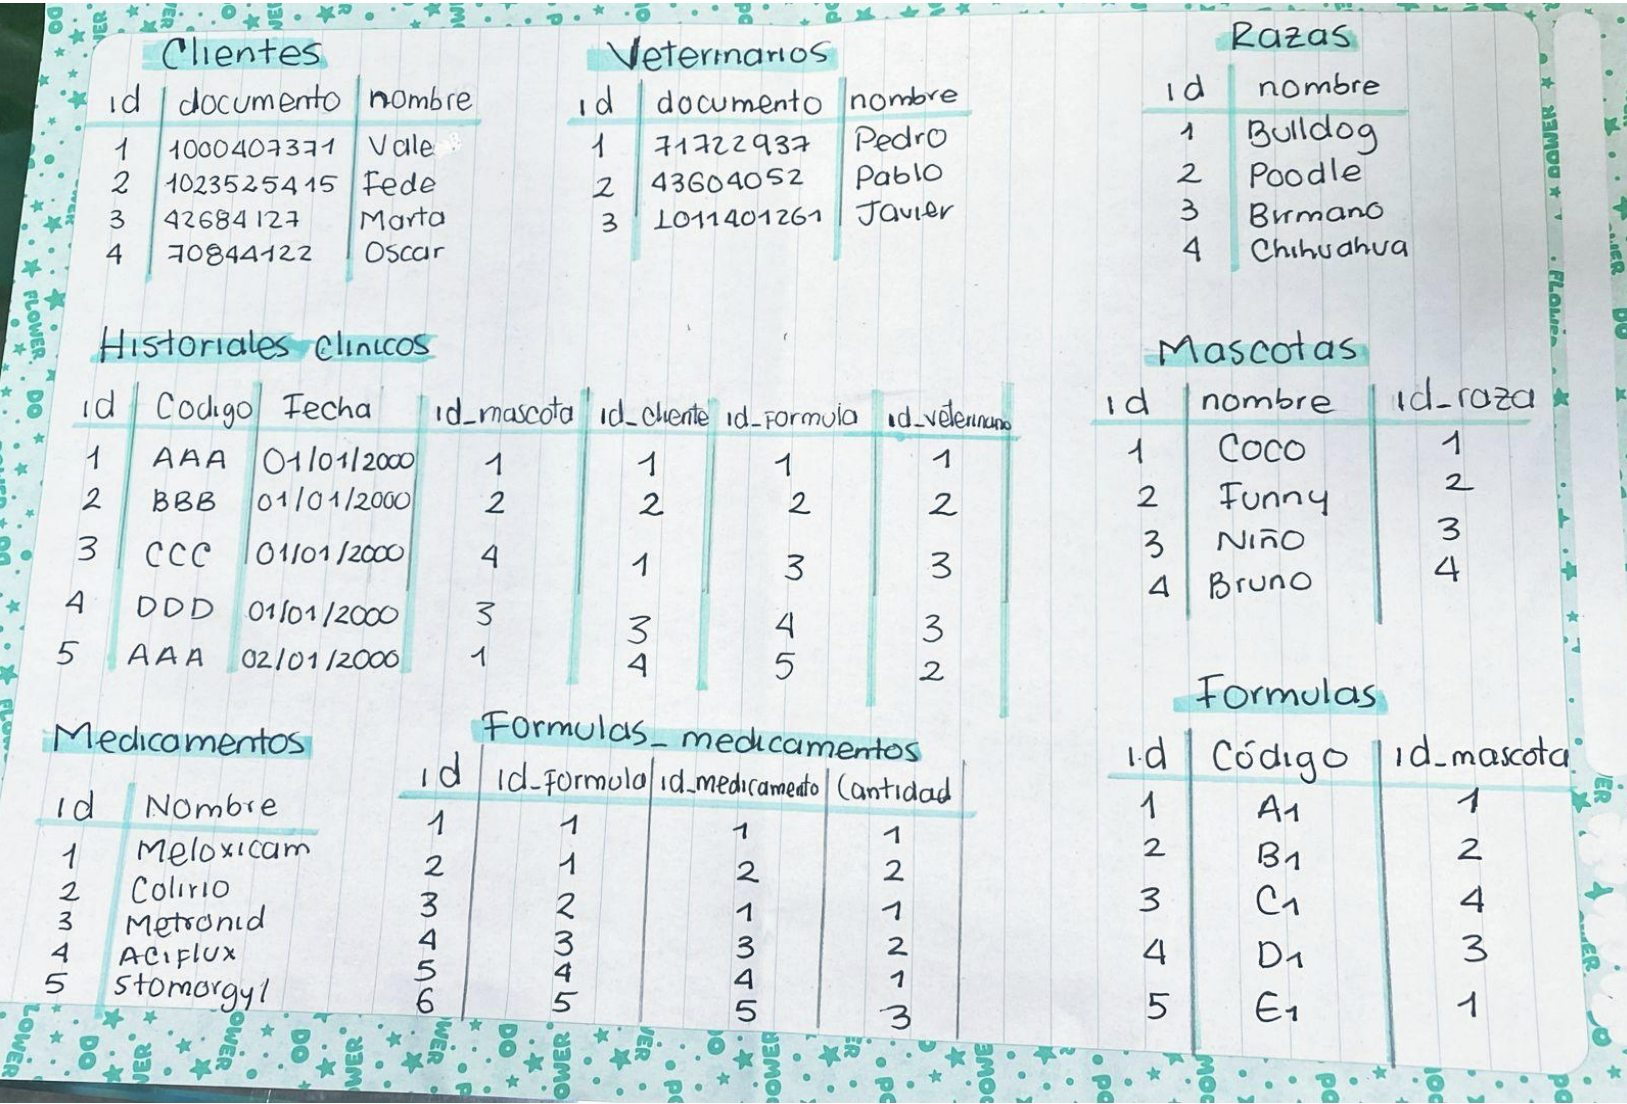 Clientes
id documento nombre
1 1000407371 Vale
2 1023525415 Fede
3 42684127 Marta
4 70844122 Oscar
Veterinarios
id documento nombre
1 71722937 Pedro
2 43604052 Pablo
3 1011401261 Javier
Razas
id nombre
1 Bulldog
2 Poodle
3 Birmano
4 Chihuahua
Historiales clinicos
id Codigo Fecha id_mascota id_cliente id_formula id_veterinario
1 AAA 01/01/2000 1 1 1 1
2 BBB 01/01/2000 2 2 2 2
3 CCC 01/01/2000 4 1 3 3
4 DDD 01/01/2000 3 3 4 3
5 AAA 02/01/2000 1 4 5 2
Mascotas
id nombre id_raza
1 Coco 1
2 Funny 2
3 Niño 3
4 Bruno 4
Medicamentos
id Nombre
1 Meloxicam
2 Colirio
3 Metronid
4 Aciflux
5 Stomorgyl
Formulas_medicamentos
id id_formula id_medicamento Cantidad
1 1 1 1
2 1 2 2
3 2 1 1
4 3 3 2
5 4 4 1
6 5 5 3
Formulas
id Código id_mascota
1 A1 1
2 B1 2
3 C1 4
4 D1 3
5 E1 1